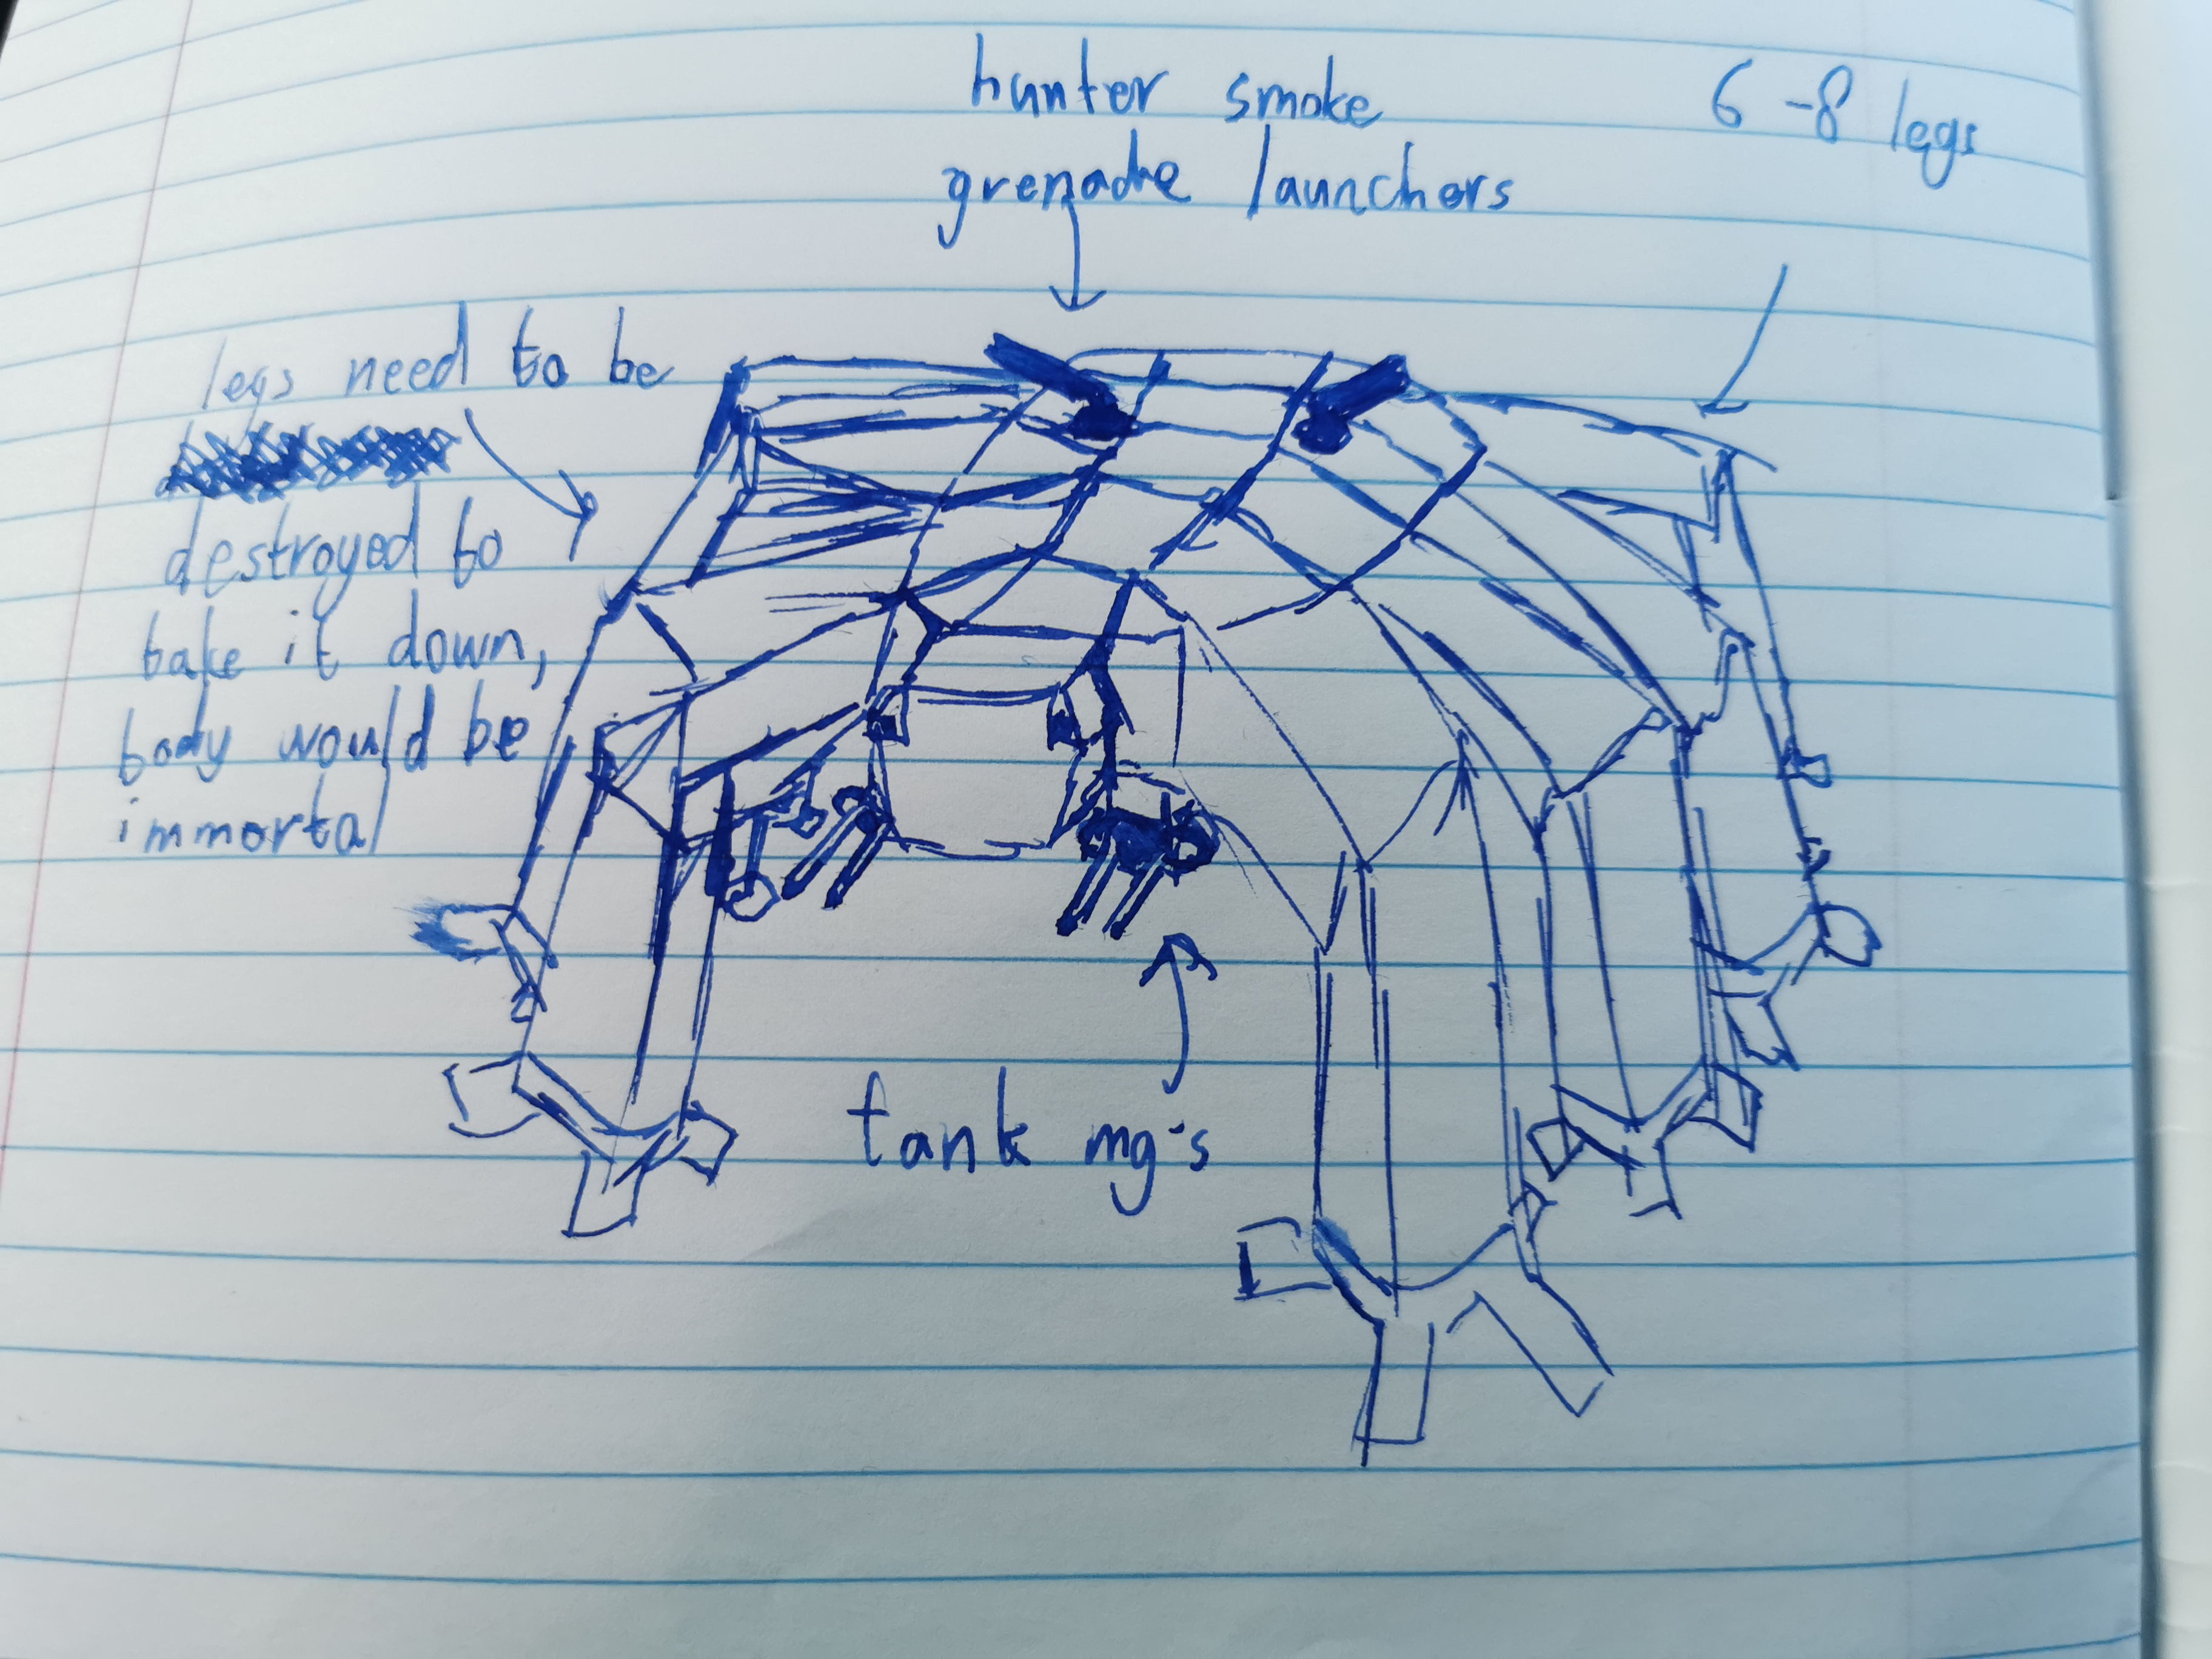 hunter smoke
grenade launchers
6-8 legs
legs need to be
destroyed to
take it down,
body would be
immortal
tank mg's